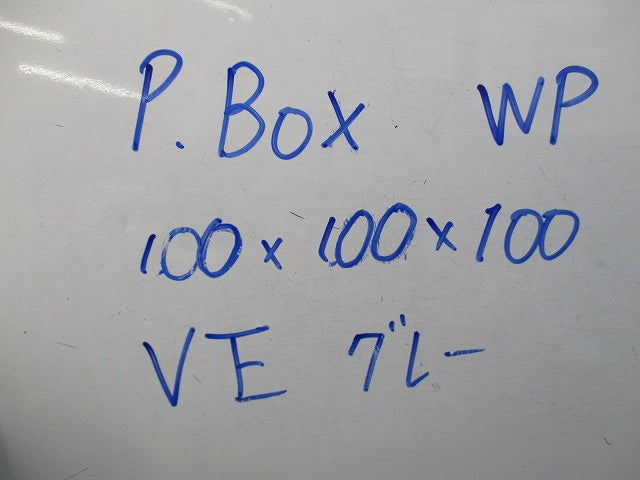 P.Box WP
100×100×100
VE グレー